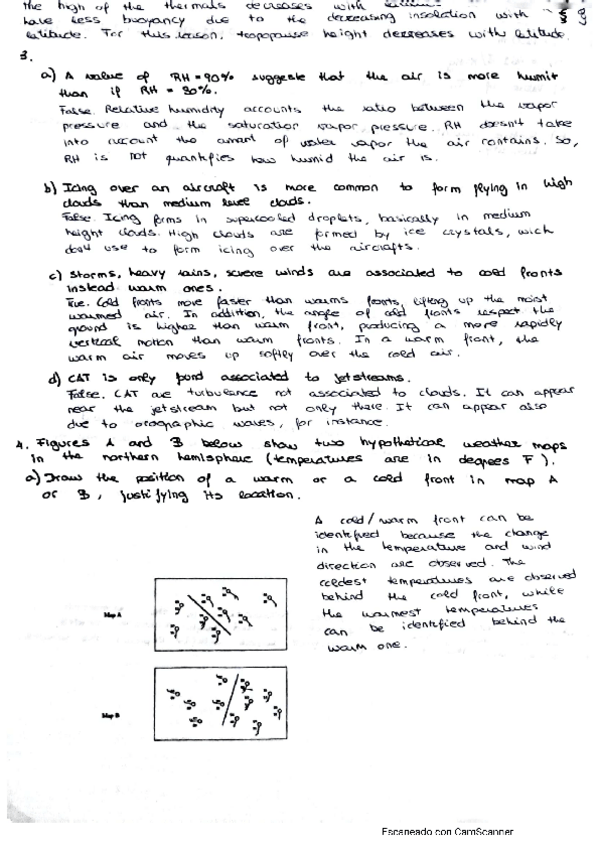 the high of the thermals decreases with
have less buoyancy due to the decreasing insolation with
latitude. For this reason, tropopause height decreases with latitude.
3.
a) A value of RH=90% suggests that the air is more humit
than if RH = 30%.
False. Relative humidity accounts the ratio between the vapor
pressure and the saturation vapor pressure. RH doesn't take
into account the amount of water vapor the air contains. So,
RH is not quantifies how humid the air is.
b) Icing over an aircraft is more common to form flying in high
clouds than medium level clouds.
False. Icing forms in supercooled droplets, basically in medium
height clouds. High clouds are formed by ice crystals, wich
don't use to form icing over the aircrafts.
c) Storms, heavy rains, severe winds are associated to cold fronts
instead warm ones.
True. Cold fronts move faster than warms fronts, lifting up the moist
warmed air. In addition, the angle of cold fronts respect the
ground is higher than warm front, producing a more rapidly
vertical motion than warm fronts. In a warm front, the
warm air moves up softly over the cold air.
d) CAT is only found associated to jetstreams.
False. CAT are turbulence not associated to clouds. It can appear
near the jetstream but not only there. It can appear also
due to orographic waves, for instance.
4. Figures A and B below show two hypothetical weather maps
in the northern hemisphere (temperatures are in degrees F).
a) Draw the position of a warm or a cold front in map A
or B, justifying its location.
A cold/warm front can be
identified because the change
in the temperature and wind
direction are observed. The
coldest temperatures are observed
behind the cold front, while
the warmest temperatures
can be identified behind the
warm one.
Map A
Map B
Escaneado con CamScanner